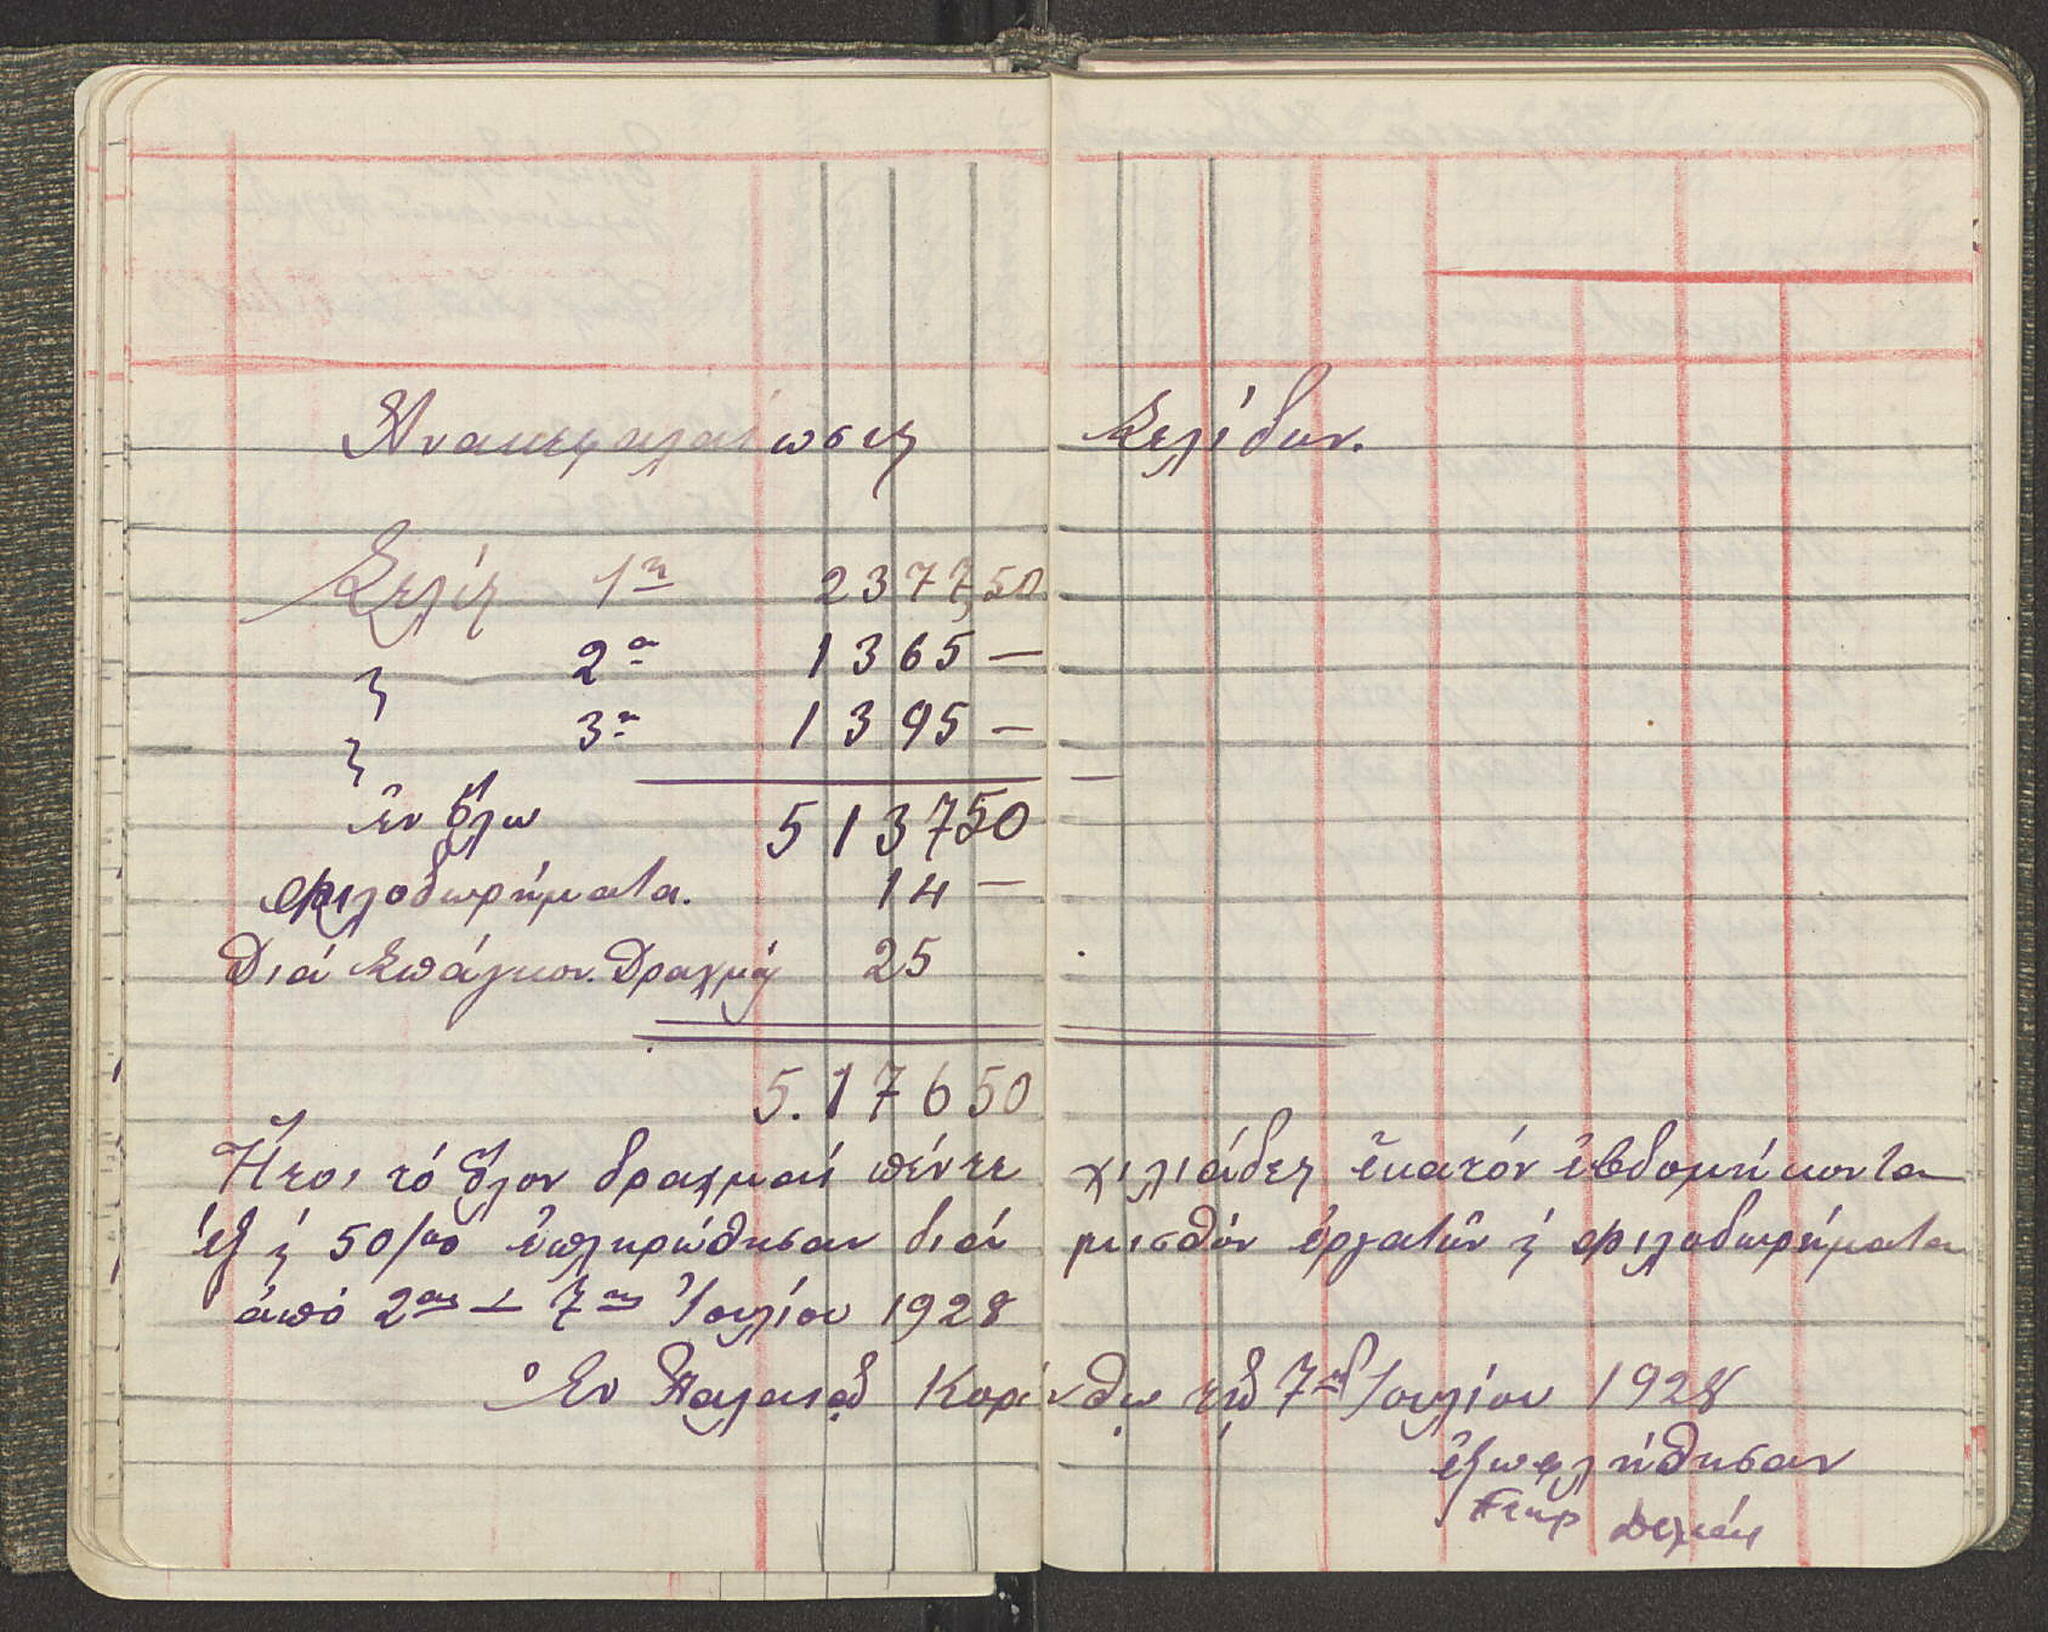 Ἀνακεφαλαίωσις Σελίδων.
Σελίς 1η 2377,50
〃 2α 1365 —
〃 3η 1395 —
ἐν ὅλω 513750
φιλοδωρήματα. 14 —
Διά Σπάγκον. Δραχμάς 25
5.17650
Ἤτοι τό ὅλον δραχμαί πέντε χιλιάδες ἑκατόν ἑβδομήκοντα
ἕξ ϗ 50/00 ἐπληρώθησαν διά μισθόν ἐργατῶν ϗ φιλοδωρήματα
ἀπό 2ας — 7ης Ἰουλίου 1928
Ἐν Παλαιᾷ Κορίνθῳ τῇ 7ῃ Ἰουλίου 1928
ἐξωφλήθησαν